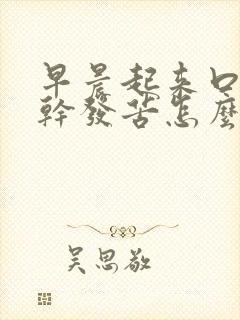 早晨起来口
幹發苦怎麼
吴思敬